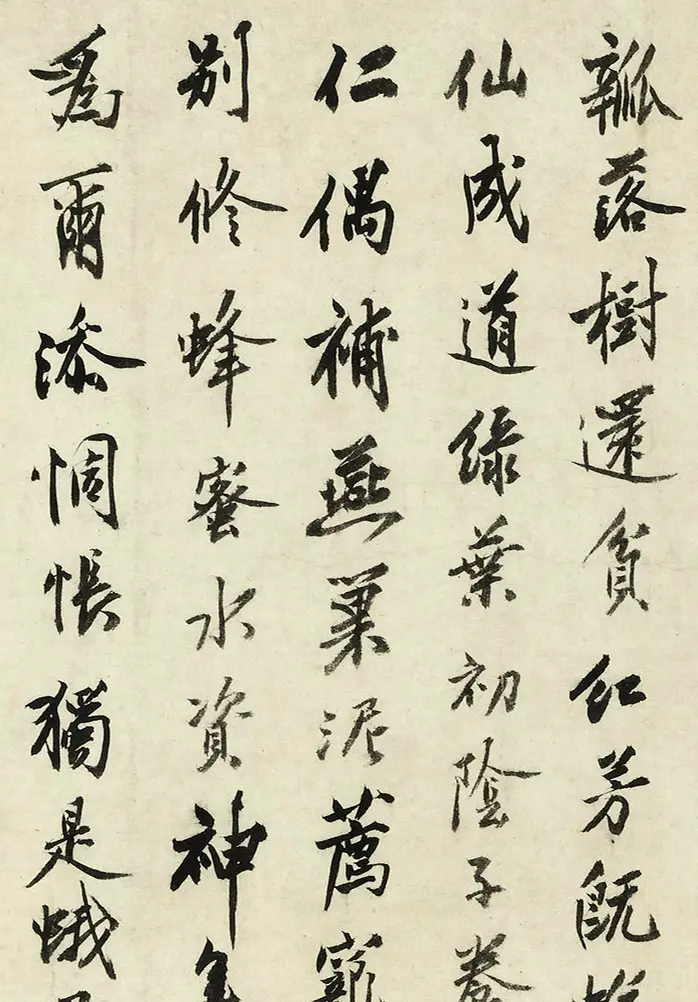 瓣落樹還貧紅芳既
仙成道綠葉初陰子養
仁偶補燕巢泥薦寵
別修蜂蜜水資神
爲爾添惆悵獨是蛾